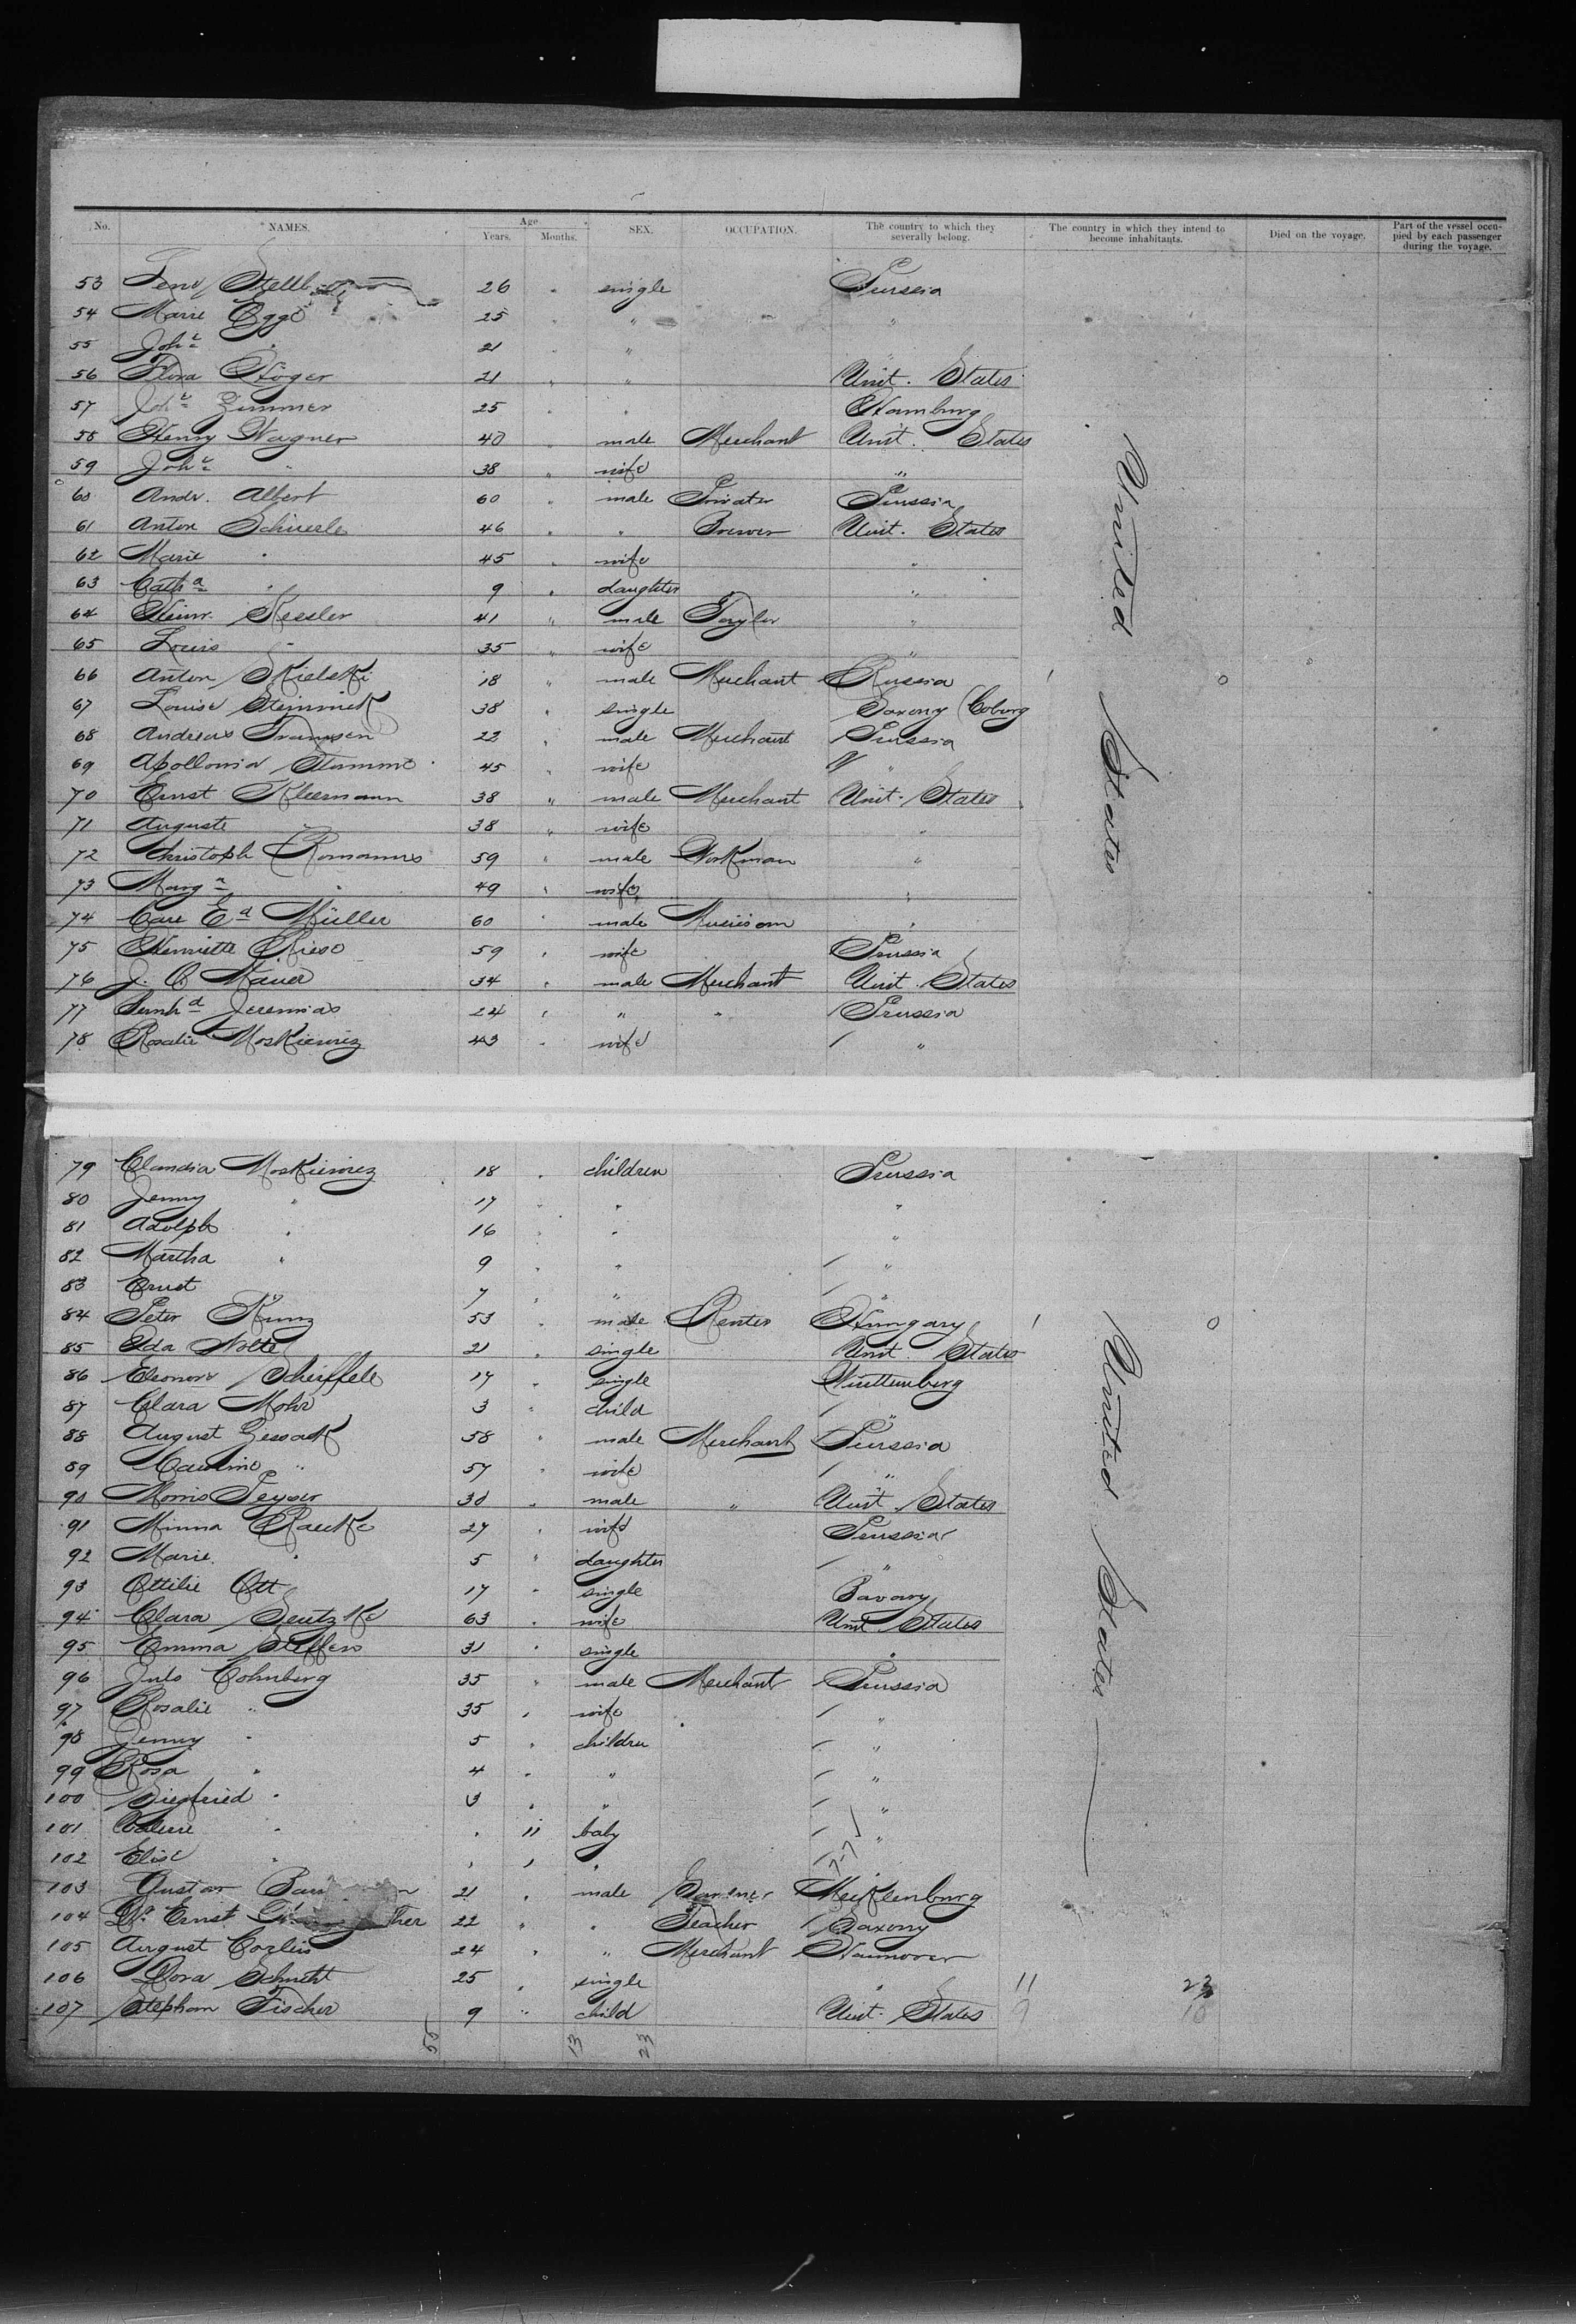 No. NAMES. Age Years. Months. SEX. OCCUPATION. The country to which they severally belong. The country in which they intend to become inhabitants. Died on the voyage. Part of the vessel occupied by each passenger during the voyage.
53 26 " single Prussia
54 Marie Egge 25 " " "
55 Joh.e " 21 " " "
56 Flora Röger 21 " " Unit. States
57 Joh.e Zimmer 25 " " Hamburg
58 Henry Wagner 40 " male Merchant Unit. States
59 Joh.e " 38 " wife "
60 Andr. Albert 60 " male Privater Prussia
61 Anton Schuerle 46 " " Brewer Unit. States
62 Marie " 45 " wife "
63 Cath.a " 9 " daughter "
64 Heinr. Kessler 41 " male Taylor "
65 Louis " 35 " wife "
66 Anton Skielski 18 " male Merchant Russia
67 Louise Steinmick 38 " single Saxony Coburg
68 Andreas Transen 22 " male Merchant Prussia
69 Apollonia Stamme 45 " wife "
70 Ernst Kleemann 38 " male Merchant Unit. States
71 Auguste " 38 " wife "
72 Christoph Romanus 59 " male Workman "
73 Marg.a " 49 " wife "
74 Carl Ed Müller 60 " male Musician "
75 Henriette Riese 59 " wife Prussia
76 J. C. Mauer 34 " male Merchant Unit. States
77 Bernh.d Jeremias 24 " " " Prussia
78 Rosalie Moskiewicz 43 " wife "
United States
79 Claudia Moskiewicz 18 " children Prussia
80 Jenny " 17 " " "
81 Adolph " 16 " " "
82 Martha " 9 " " "
83 Ernst 7 " " "
84 Peter Kunz 53 " male Renter Hungary
85 Ida Nolte 21 " single Unit. States
86 Eleonore Scheiffele 17 " single Württemberg
87 Clara Mohr 3 " child "
88 August Gessack 58 " male Merchant Prussia
89 " 57 " wife "
90 Morris Peyser 30 " male " Unit. States
91 Minna Raecke 27 " wife Prussia
92 Marie " 5 " daughter "
93 Ottilie Ott 17 " single Bavary
94 Clara Gentzke 63 " wife Unit States
95 Emma Steffens 31 " single "
96 Juls Cohnberg 35 " male Merchant Prussia
97 Rosalie " 35 " wife "
98 Jenny " 5 " children "
99 Rosa " 4 " " "
100 Siegfried " 3 " " "
101 " " 11 baby "
102 Elise " " " "
103 Gustav 21 " male Mecklenburg
104 Dr. Ernst 22 " " Teacher Saxony
105 August 24 " " Merchant Hannover
106 Dora Schucht 25 " single " 11 23
107 Stephan Fischer 9 " child Unit. States 9 10
United States
13 23